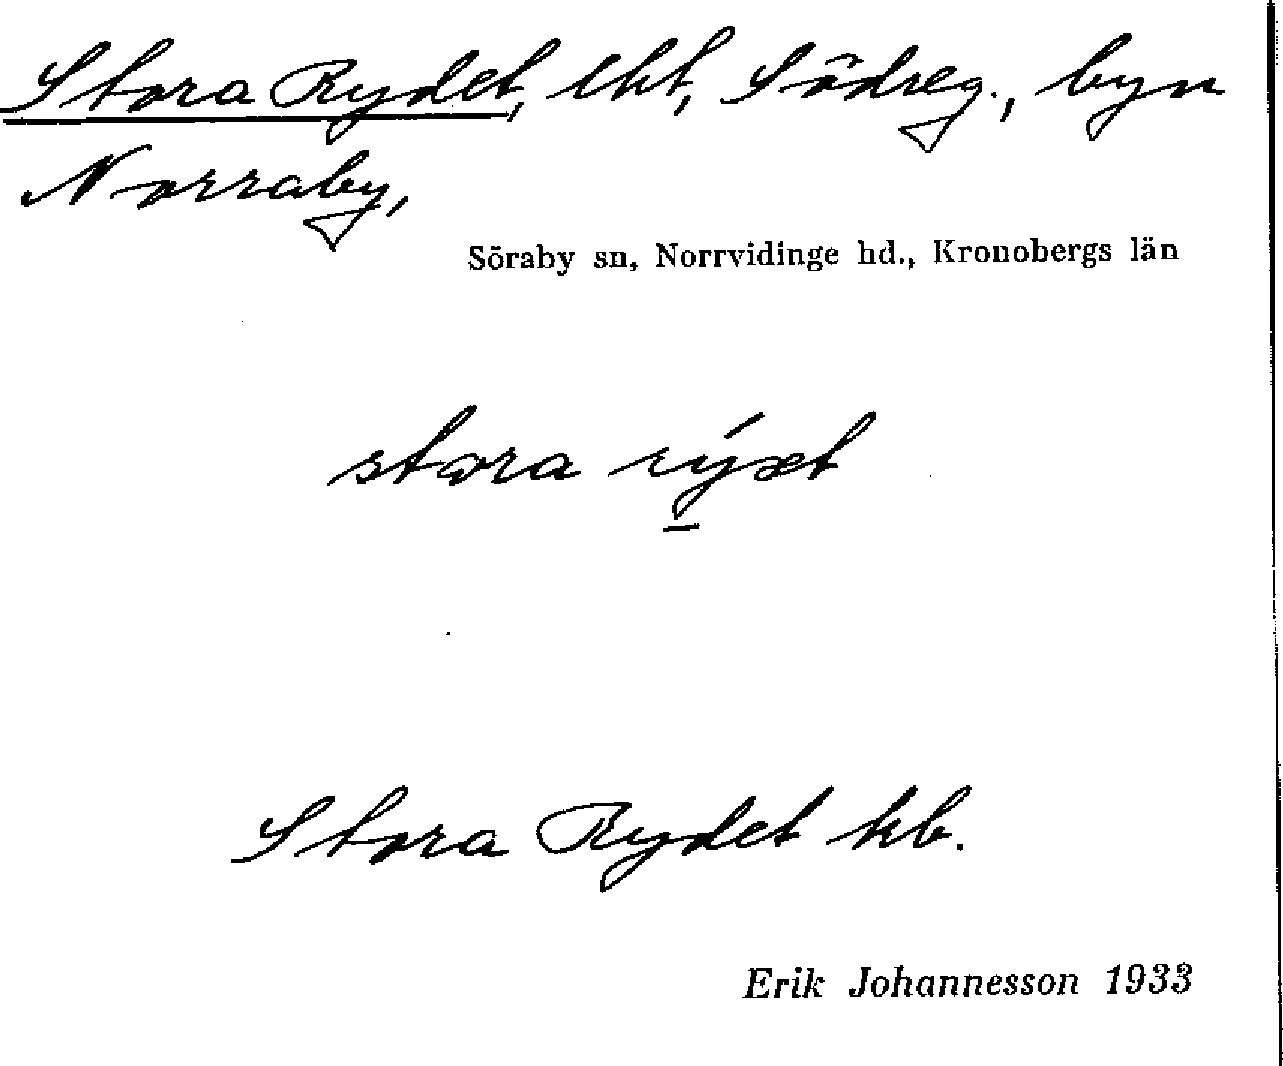 Stora Rydet, lht, Södreg., byn
Norraby,
Söraby sn, Norrvidinge hd., Kronobergs län
stora rýæt
Stora Rydet kb.
Erik Johannesson 1933